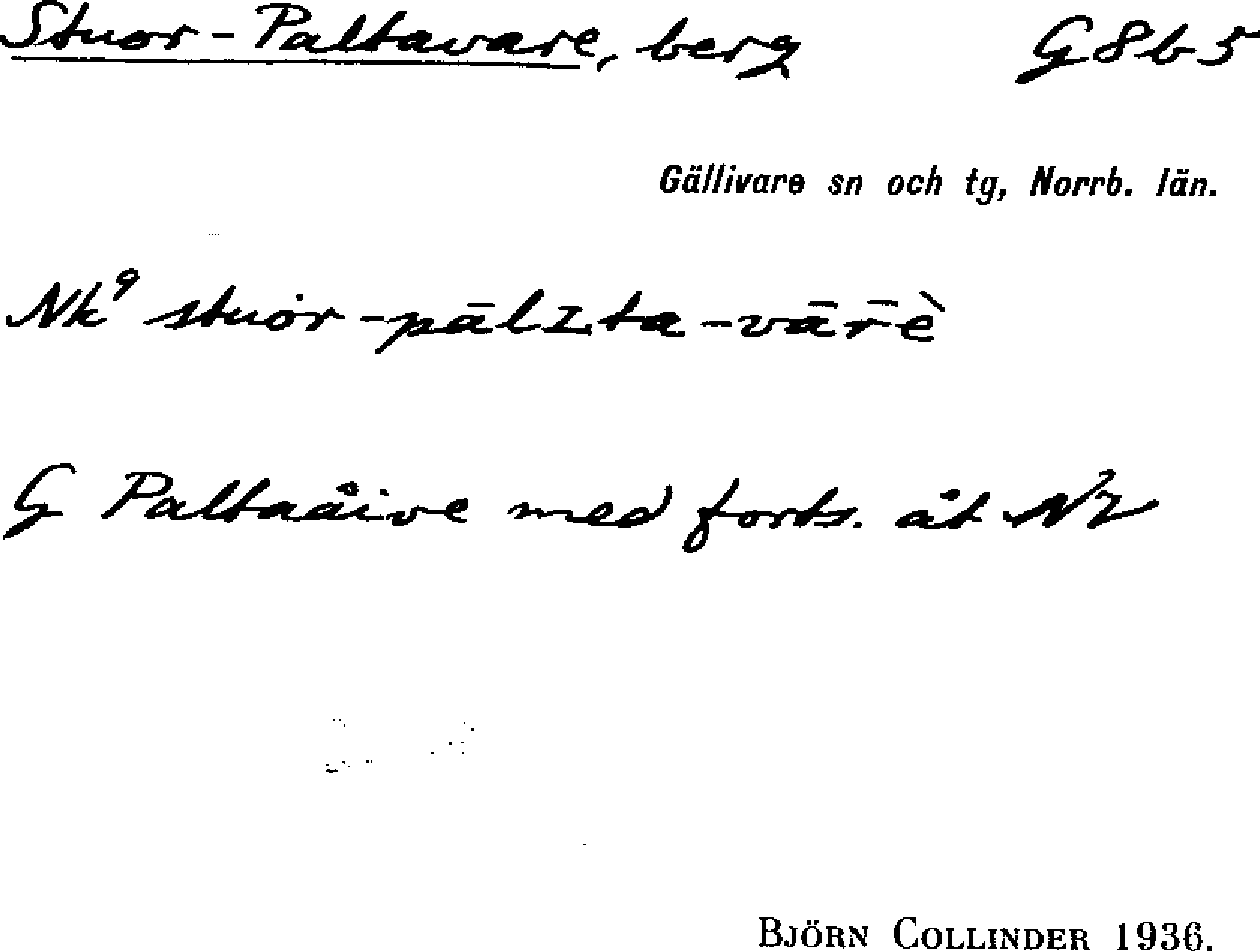 Stuor-Paltavare, berg G8b5
Gällivare sn och tg, Norrb. län.
Nk⁹ stuor-pālzta-vār̄ḕ
G Paltaåive med forts. åt
BJÖRN COLLINDER 1936.